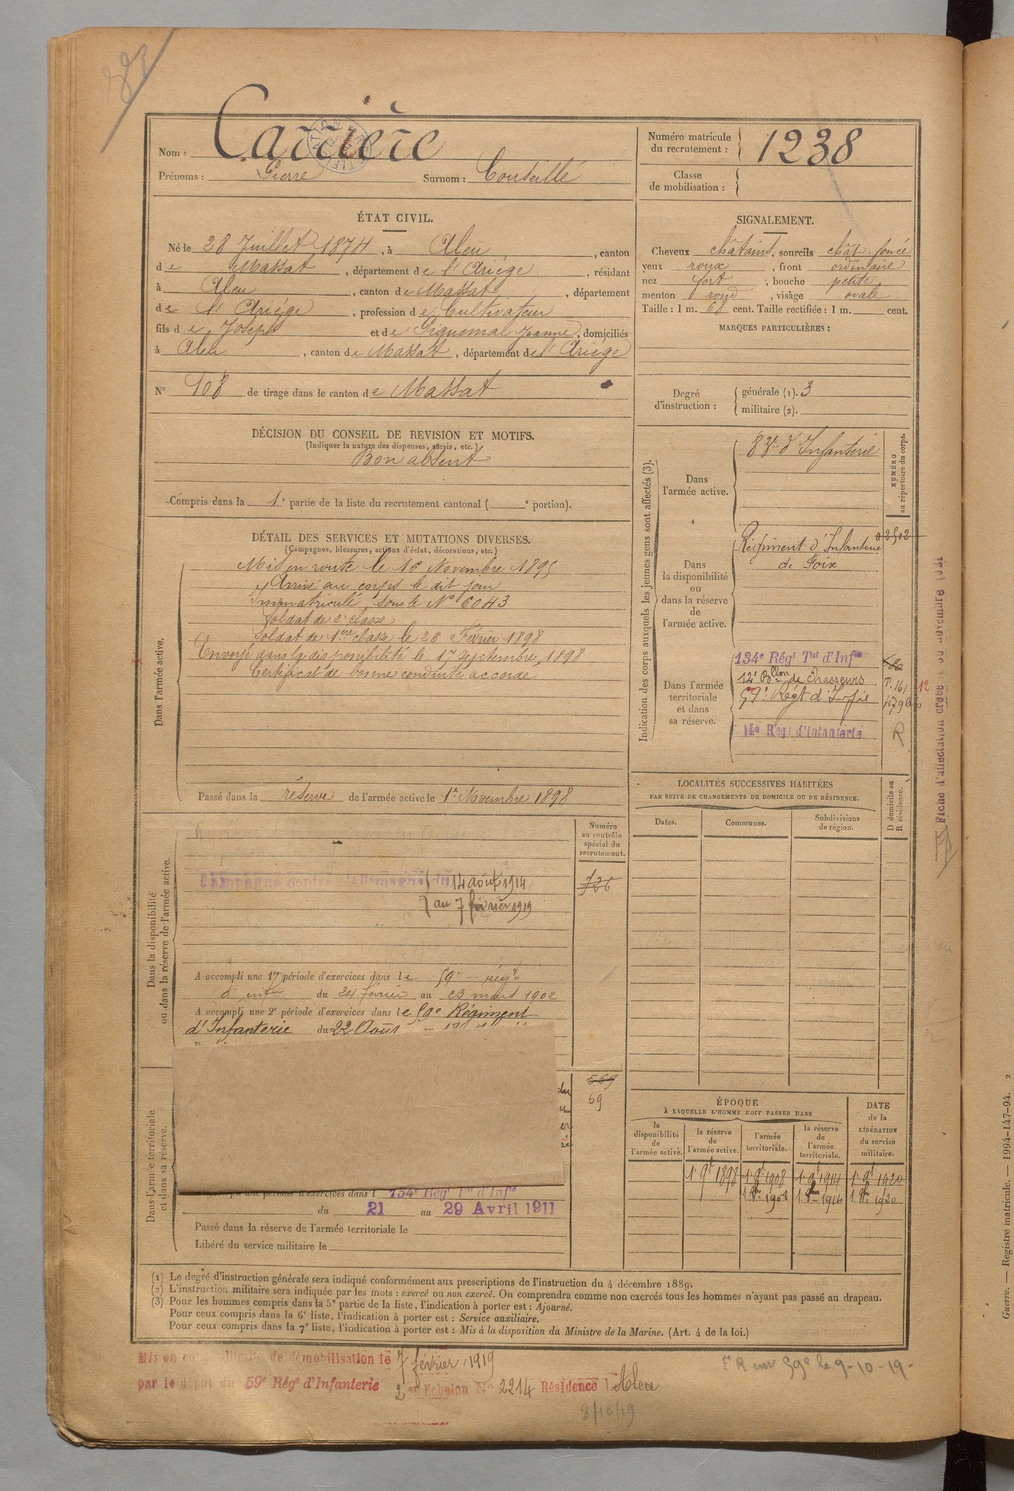 Carrière
Nom :
Prénoms : Pierre Surnom : Couseillé
Numéro matricule du recrutement : 1238
Classe de mobilisation :
ÉTAT CIVIL.
Né le 28 Juillet 1874, à Aleu, canton
de Massat, département de l'Ariége, résidant
à Aleu, canton de Massat, département
de l'Ariége, profession de Cultivateur
fils de Joseph et de Piquemal Jeanne, domiciliés
à Aleu, canton de Massat, département de l'Ariége
N° 108 de tirage dans le canton de Massat
SIGNALEMENT.
Cheveux châtains, sourcils chât. foncé
yeux roux, front ordinaire
nez fort, bouche petite
menton rond, visage ovale
Taille : 1 m. 68 cent. Taille rectifiée : 1 m. cent.
MARQUES PARTICULIÈRES :
Degré d'instruction : générale (1). 3
militaire (2).
DÉCISION DU CONSEIL DE REVISION ET MOTIFS.
(Indiquer la nature des dispenses, sursis, etc.)
Bon absent
Compris dans la 1e partie de la liste du recrutement cantonal ( e portion).
DÉTAIL DES SERVICES ET MUTATIONS DIVERSES.
(Campagnes, blessures, actions d'éclat, décorations, etc.)
Dans l'armée active.
Mis en route le 16 Novembre 1895
Arrivé au corps le dit jour
immatriculé sous le N° 6043
Soldat de 2e classe
Soldat de 1ère classe le 26 Février 1898
Envoyé dans la disponibilité le 17 septembre 1898
Certificat de bonne conduite accordé
Passé dans la réserve de l'armée active le 1er Novembre 1898
Indication des corps auxquels les jeunes gens sont affectés (3).
NUMÉRO au répertoire du corps.
Dans l'armée active.
83e d'Infanterie
Dans la disponibilité ou dans la réserve de l'armée active.
Régiment d'Infanterie
de Foix
2502
Dans l'armée territoriale et dans sa réserve.
134e Régt Tal d'Infie
12e Bllon de Chasseurs
59e Régt d'Infie
14e Régt d'Infanterie
R
LOCALITÉS SUCCESSIVES HABITÉES
PAR SUITE DE CHANGEMENTS DE DOMICILE OU DE RÉSIDENCE.
Dates.
Communes.
Subdivisions de région.
D domicile ou R résidence.
Dans la disponibilité ou dans la réserve de l'armée active.
Numéro au contrôle spécial du recrutement.
726
Campagne contre l'Allemagne du 14 août 1914
au 7 février 1919
A accompli une 1re période d'exercices dans le 59e régt
d'infie du 24 février au 23 mars 1902
A accompli une 2e période d'exercices dans le 59e Régiment
d'Infanterie du 22 Août
Dans l'armée territoriale et dans sa réserve.
569
69
période d'exercices dans l 134e Régt Tal d'Infie
du 21 au 29 Avril 1911
Passé dans la réserve de l'armée territoriale le
Libéré du service militaire le
ÉPOQUE
À LAQUELLE L'HOMME DOIT PASSER DANS
la disponibilité de l'armée active.
la réserve de l'armée active.
l'armée territoriale.
la réserve de l'armée territoriale.
DATE de la LIBÉRATION du service militaire.
1 9bre 1898
1 9bre 1908
1 9bre 1914
1 9bre 1920
(1) Le degré d'instruction générale sera indiqué conformément aux prescriptions de l'instruction du 4 décembre 1889.
(2) L'instruction militaire sera indiquée par les mots : exercé ou non exercé. On comprendra comme non exercés tous les hommes n'ayant pas passé au drapeau.
(3) Pour les hommes compris dans la 5e partie de la liste, l'indication à porter est : Ajourné.
Pour ceux compris dans la 6e liste, l'indication à porter est : Service auxiliaire.
Pour ceux compris dans la 7e liste, l'indication à porter est : Mis à la disposition du Ministre de la Marine. (Art. 4 de la loi.)
Mis en congé illimité de démobilisation le 7 février 1919
par le dépôt du 59e Régt d'Infanterie 2e Echelon N° 2214 Résidence Aleu
8/10/19
59e le 9-10-19-
Guerre. — Registre matricule. — 1994-147-94. 2